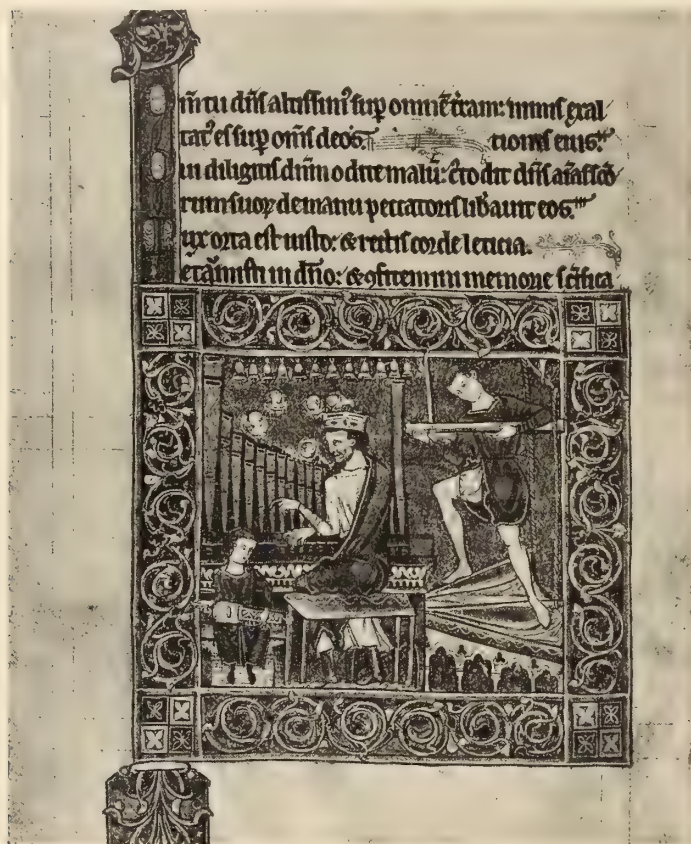 m̄ tu dn̄s altissimꝰ suꝑ omnē t̄ram: nimis exal
tatꝰ es suꝑ om̄s deos. tionis eius.
ui diligitis dn̄m odite malū: c̄todit dn̄s aīas sc̄o
rum suoꝝ de manu peccatoris lib̄auit eos.
ux orta est iusto: & rectis corde leticia.
etam̄i iusti in dn̄o: & ꝯfitemini memorie sc̄ifica